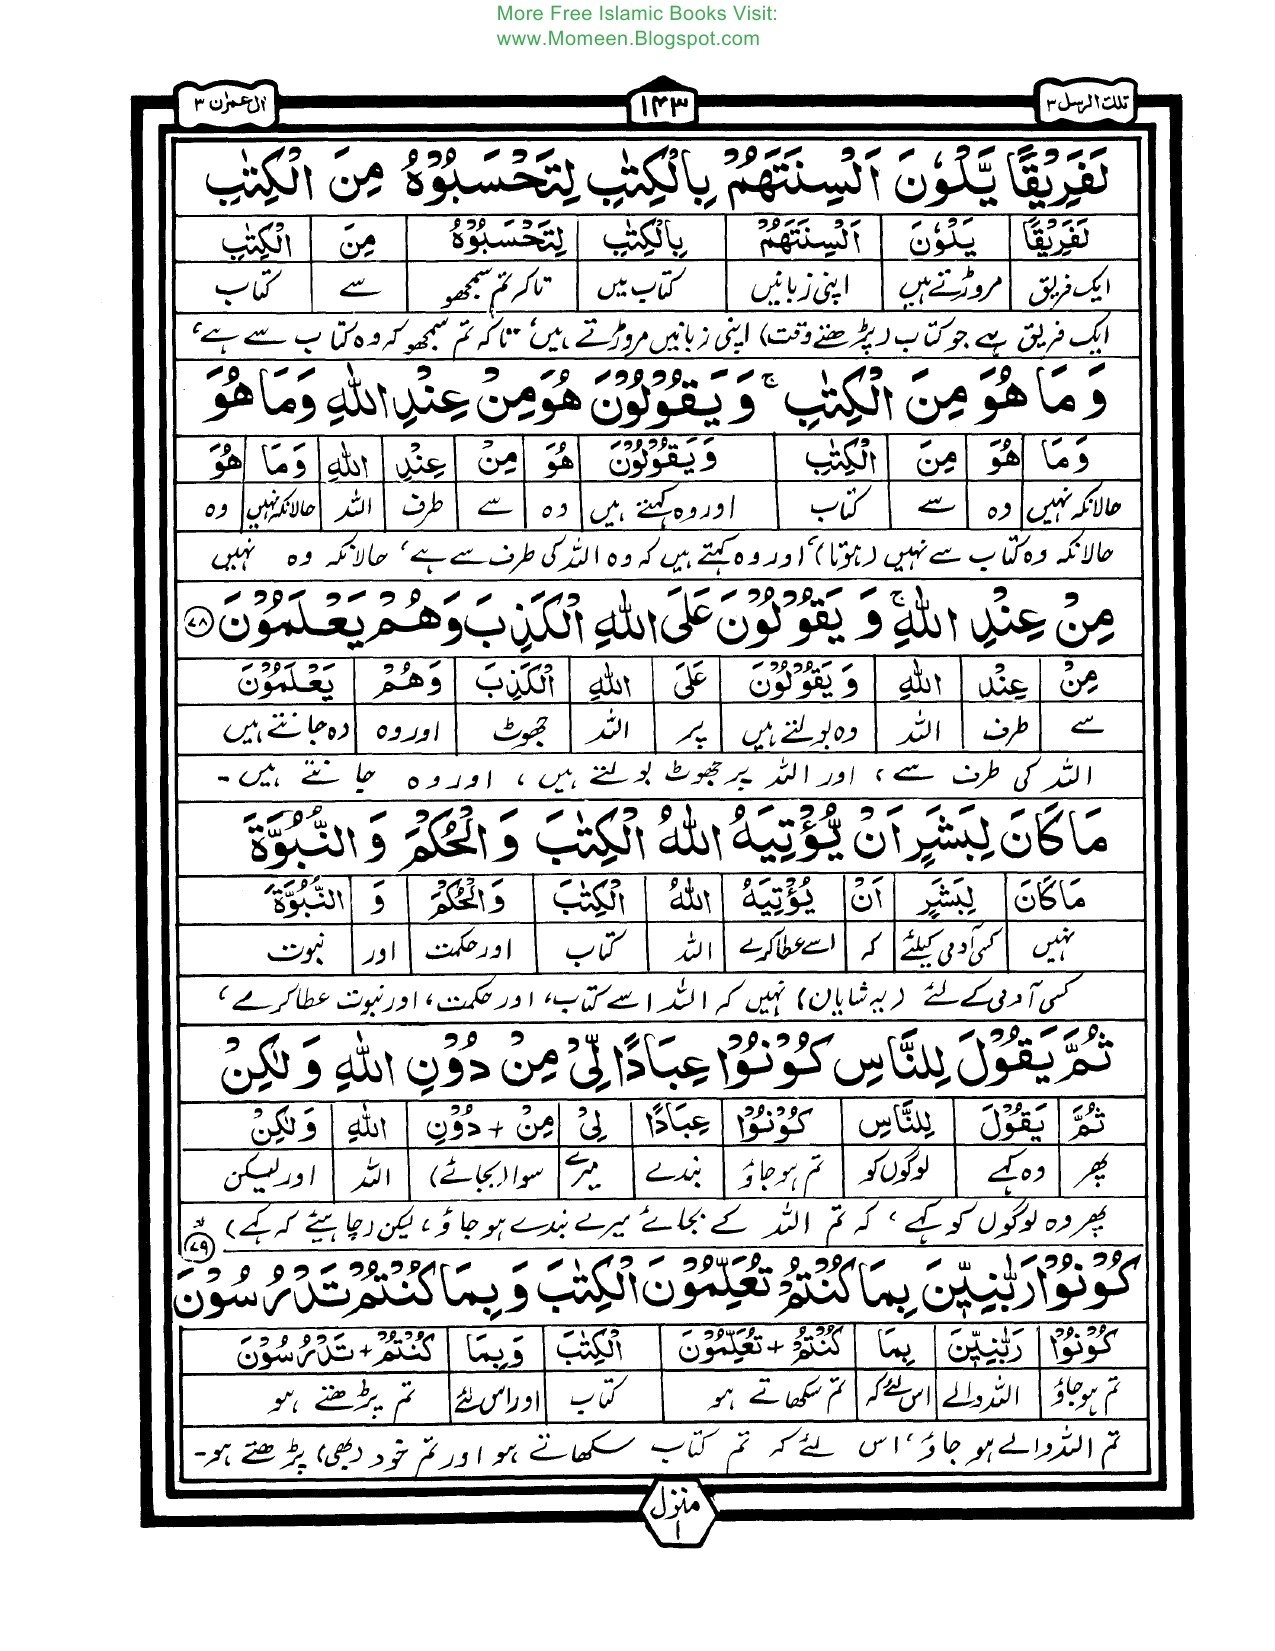 More Free Islamic Books Visit:
www.Momeen.Blogspot.com
تلك الرسل ۳ ۱۴۳ اٰل عمرٰن ۳
لَفَرِيْقًا يَّلْوٗنَ اَلْسِنَتَهُمْ بِالْكِتٰبِ لِتَحْسَبُوْهُ مِنَ الْكِتٰبِ
لَفَرِيْقًا يَلْوٗنَ اَلْسِنَتَهُمْ بِالْكِتٰبِ لِتَحْسَبُوْهُ مِنَ الْكِتٰبِ
ایک فریق مروڑتے ہیں اپنی زبانیں کتاب میں تاکہ تم سمجھو سے کتاب
ایک فریق ہے جو کتاب (پڑھتے وقت) اپنی زبانیں مروڑتے ہیں، تاکہ تم سمجھو کہ وہ کتاب سے ہے،
وَمَا هُوَ مِنَ الْكِتٰبِ ۚ وَيَقُوْلُوْنَ هُوَ مِنْ عِنْدِ اللّٰهِ وَمَا هُوَ
وَمَا هُوَ مِنَ الْكِتٰبِ وَيَقُوْلُوْنَ هُوَ مِنْ عِنْدِ اللّٰهِ وَمَا هُوَ
حالانکہ نہیں وہ سے کتاب اور وہ کہتے ہیں وہ سے طرف اللہ حالانکہ نہیں وہ
حالانکہ وہ کتاب سے نہیں (ہوتا)، اور وہ کہتے ہیں کہ وہ اللہ کی طرف سے ہے، حالانکہ وہ نہیں
مِنْ عِنْدِ اللّٰهِ ۚ وَيَقُوْلُوْنَ عَلَى اللّٰهِ الْكَذِبَ وَهُمْ يَعْلَمُوْنَ ۷۸
مِنْ عِنْدِ اللّٰهِ وَيَقُوْلُوْنَ عَلَى اللّٰهِ الْكَذِبَ وَهُمْ يَعْلَمُوْنَ
سے طرف اللہ وہ بولتے ہیں پر اللہ جھوٹ اور وہ وہ جانتے ہیں
اللہ کی طرف سے، اور اللہ پر جھوٹ بولتے ہیں، اور وہ جانتے ہیں۔
مَا كَانَ لِبَشَرٍ اَنْ يُّؤْتِيَهُ اللّٰهُ الْكِتٰبَ وَالْحُكْمَ وَالنُّبُوَّةَ
مَا كَانَ لِبَشَرٍ اَنْ يُؤْتِيَهُ اللّٰهُ الْكِتٰبَ وَالْحُكْمَ وَ النُّبُوَّةَ
نہیں کسی آدمی کیلئے کہ اسے عطا کرے اللہ کتاب اور حکمت اور نبوت
کسی آدمی کے لئے (یہ شایان) نہیں کہ اللہ اسے کتاب، اور حکمت، اور نبوت عطا کرے،
ثُمَّ يَقُوْلَ لِلنَّاسِ كُوْنُوْا عِبَادًا لِّيْ مِنْ دُوْنِ اللّٰهِ وَلٰكِنْ
ثُمَّ يَقُوْلَ لِلنَّاسِ كُوْنُوْا عِبَادًا لِيْ مِنْ + دُوْنِ اللّٰهِ وَلٰكِنْ
پھر وہ کہے لوگوں کو تم ہو جاؤ بندے میرے سوا (بجائے) اللہ اور لیکن
پھر وہ لوگوں کو کہے، کہ تم اللہ کے بجائے میرے بندے ہو جاؤ، لیکن (چاہیئے کہ کہے)
كُوْنُوْا رَبّٰنِيّٖنَ بِمَا كُنْتُمْ تُعَلِّمُوْنَ الْكِتٰبَ وَبِمَا كُنْتُمْ تَدْرُسُوْنَ ۷۹
كُوْنُوْا رَبّٰنِيّٖنَ بِمَا كُنْتُمْ + تُعَلِّمُوْنَ الْكِتٰبَ وَبِمَا كُنْتُمْ + تَدْرُسُوْنَ
تم ہو جاؤ اللہ والے اس لئے کہ تم سکھاتے ہو کتاب اور اس لئے تم پڑھتے ہو
تم اللہ والے ہو جاؤ، اس لئے کہ تم کتاب سکھاتے ہو اور تم خود (بھی) پڑھتے ہو۔
منزل
۱